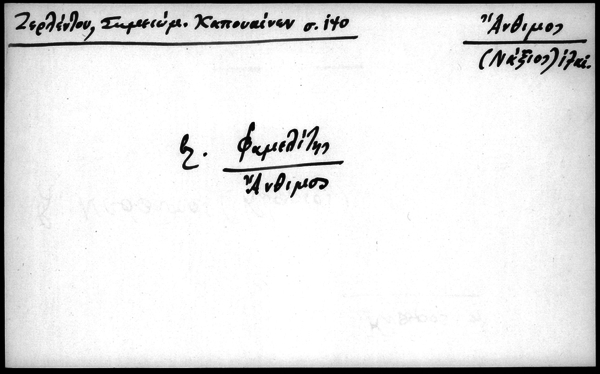 Ζερλέντου, Σημειώμ. Καπουκίνων σ. ίγο
Ἄνθιμος
(Νάξιος)
β.
Φαμελίτης
Ἄνθιμος